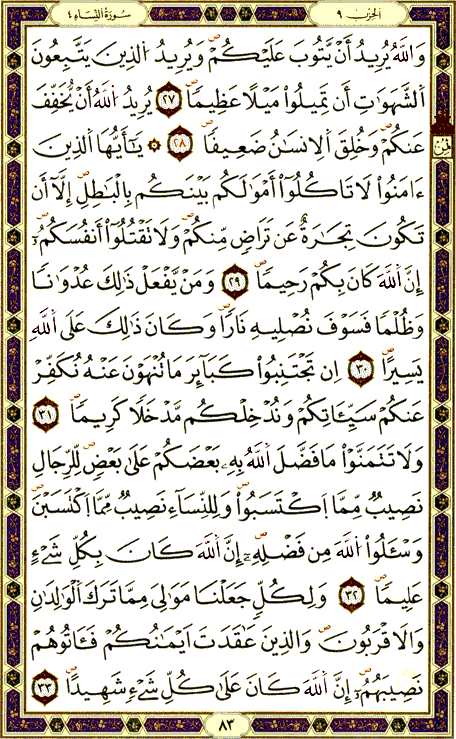 سُورَةُ النِّسَاءِ ٤ الحزب ٩
وَاللَّهُ يُرِيدُ أَنْ يَّتُوبَ عَلَيْكُمْ وَيُرِيدُ الذِينَ يَتَّبِعُونَ
اَلشَّهَوَٰتِ أَن تَمِيلُواْ مَيْلًا عَظِيمًا ٢٧ يُرِيدُ اللَّهُ أَنْ يُّخَفِّفَ
عَنكُمْ وَخُلِقَ اَلِانسَٰنُ ضَعِيفًا ٢٨ ۞ يَٰأَيُّهَا اَلذِينَ
ءَامَنُواْ لَا تَاكُلُواْ أَمْوَٰلَكُم بَيْنَكُم بِالْبَٰطِلِ إِلَّا أَن
تَكُونَ تِجَٰرَةٌ عَن تَرَاضٍ مِّنكُمْ وَلَا تَقْتُلُواْ أَنفُسَكُمُۥ
إِنَّ اَللَّهَ كَانَ بِكُمْ رَحِيمًا ٢٩ وَمَنْ يَّفْعَلْ ذَٰلِكَ عُدْوَٰنًا
وَظُلْمًا فَسَوْفَ نُصْلِيهِ نَارًا وَكَانَ ذَٰلِكَ عَلَى اَللَّهِ
يَسِيرًا ٣٠ اِن تَجْتَنِبُواْ كَبَآئِرَ مَا تُنْهَوْنَ عَنْهُ نُكَفِّرْ
عَنكُمْ سَيِّـَٔاتِكُمْ وَنُدْخِلْكُم مَّدْخَلًا كَرِيمًا ٣١
وَلَا تَتَمَنَّوْاْ مَا فَضَّلَ اَللَّهُ بِهِۦ بَعْضَكُمْ عَلَىٰ بَعْضٍ لِّلرِّجَالِ
نَصِيبٌ مِّمَّا اَكْتَسَبُواْ وَلِلنِّسَآءِ نَصِيبٌ مِّمَّا اَكْتَسَبْنَ
وَسْـَٔلُواْ اُللَّهَ مِن فَضْلِهِۦ إِنَّ اَللَّهَ كَانَ بِكُلِّ شَےْءٍ
عَلِيمًا ٣٢ وَلِكُلٍّ جَعَلْنَا مَوَٰلِيَ مِمَّا تَرَكَ اَلْوَٰلِدَٰنِ
وَالَاقْرَبُونَ وَالذِينَ عَٰقَدَتَ اَيْمَٰنُكُمْ فَـَٔاتُوهُمْ
نَصِيبَهُمُۥ إِنَّ اَللَّهَ كَانَ عَلَىٰ كُلِّ شَےْءٍ شَهِيدًا ٣٣
ثمن
٨٣